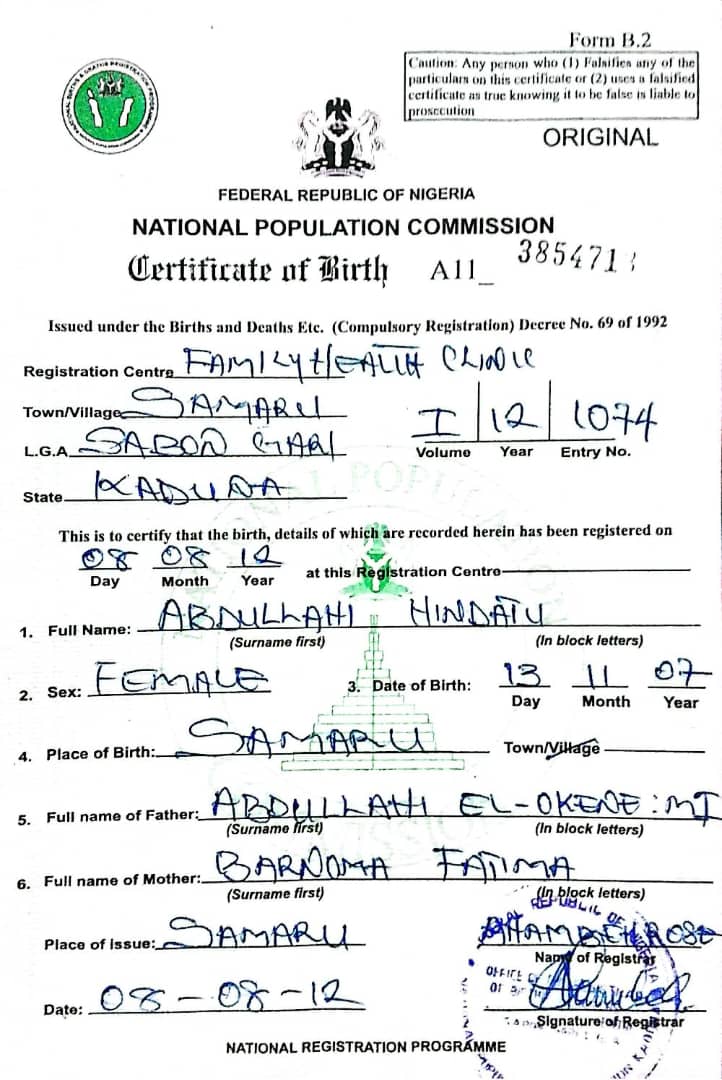 Form B.2
Caution: Any person who (1) Falsifies any of the
particulars on this certificate or (2) uses a falsified
certificate as true knowing it to be false is liable to
prosecution
ORIGINAL
FEDERAL REPUBLIC OF NIGERIA
NATIONAL POPULATION COMMISSION
Certificate of Birth A11_ 385471
Issued under the Births and Deaths Etc. (Compulsory Registration) Decree No. 69 of 1992
Registration Centre FAMILY HEALTH CLINIC
Town/Village SAMARU
I 12 1074
L.G.A. SABON GARI
Volume Year Entry No.
State KADUNA
This is to certify that the birth, details of which are recorded herein has been registered on
08 08 12
Day Month Year at this Registration Centre
1. Full Name: ABDULLAHI HINDATU
(Surname first) (In block letters)
2. Sex: FEMALE 3. Date of Birth: 13 11 07
Day Month Year
4. Place of Birth: SAMARU Town/Village
5. Full name of Father: ABDULLAHI EL-OKENE : MI
(Surname first) (In block letters)
6. Full name of Mother: BARNOMA FATIMA
(Surname first) (In block letters)
Place of Issue: SAMARU
ROSE
Name of Registrar
Date: 08-08-12
Signature of Registrar
NATIONAL REGISTRATION PROGRAMME